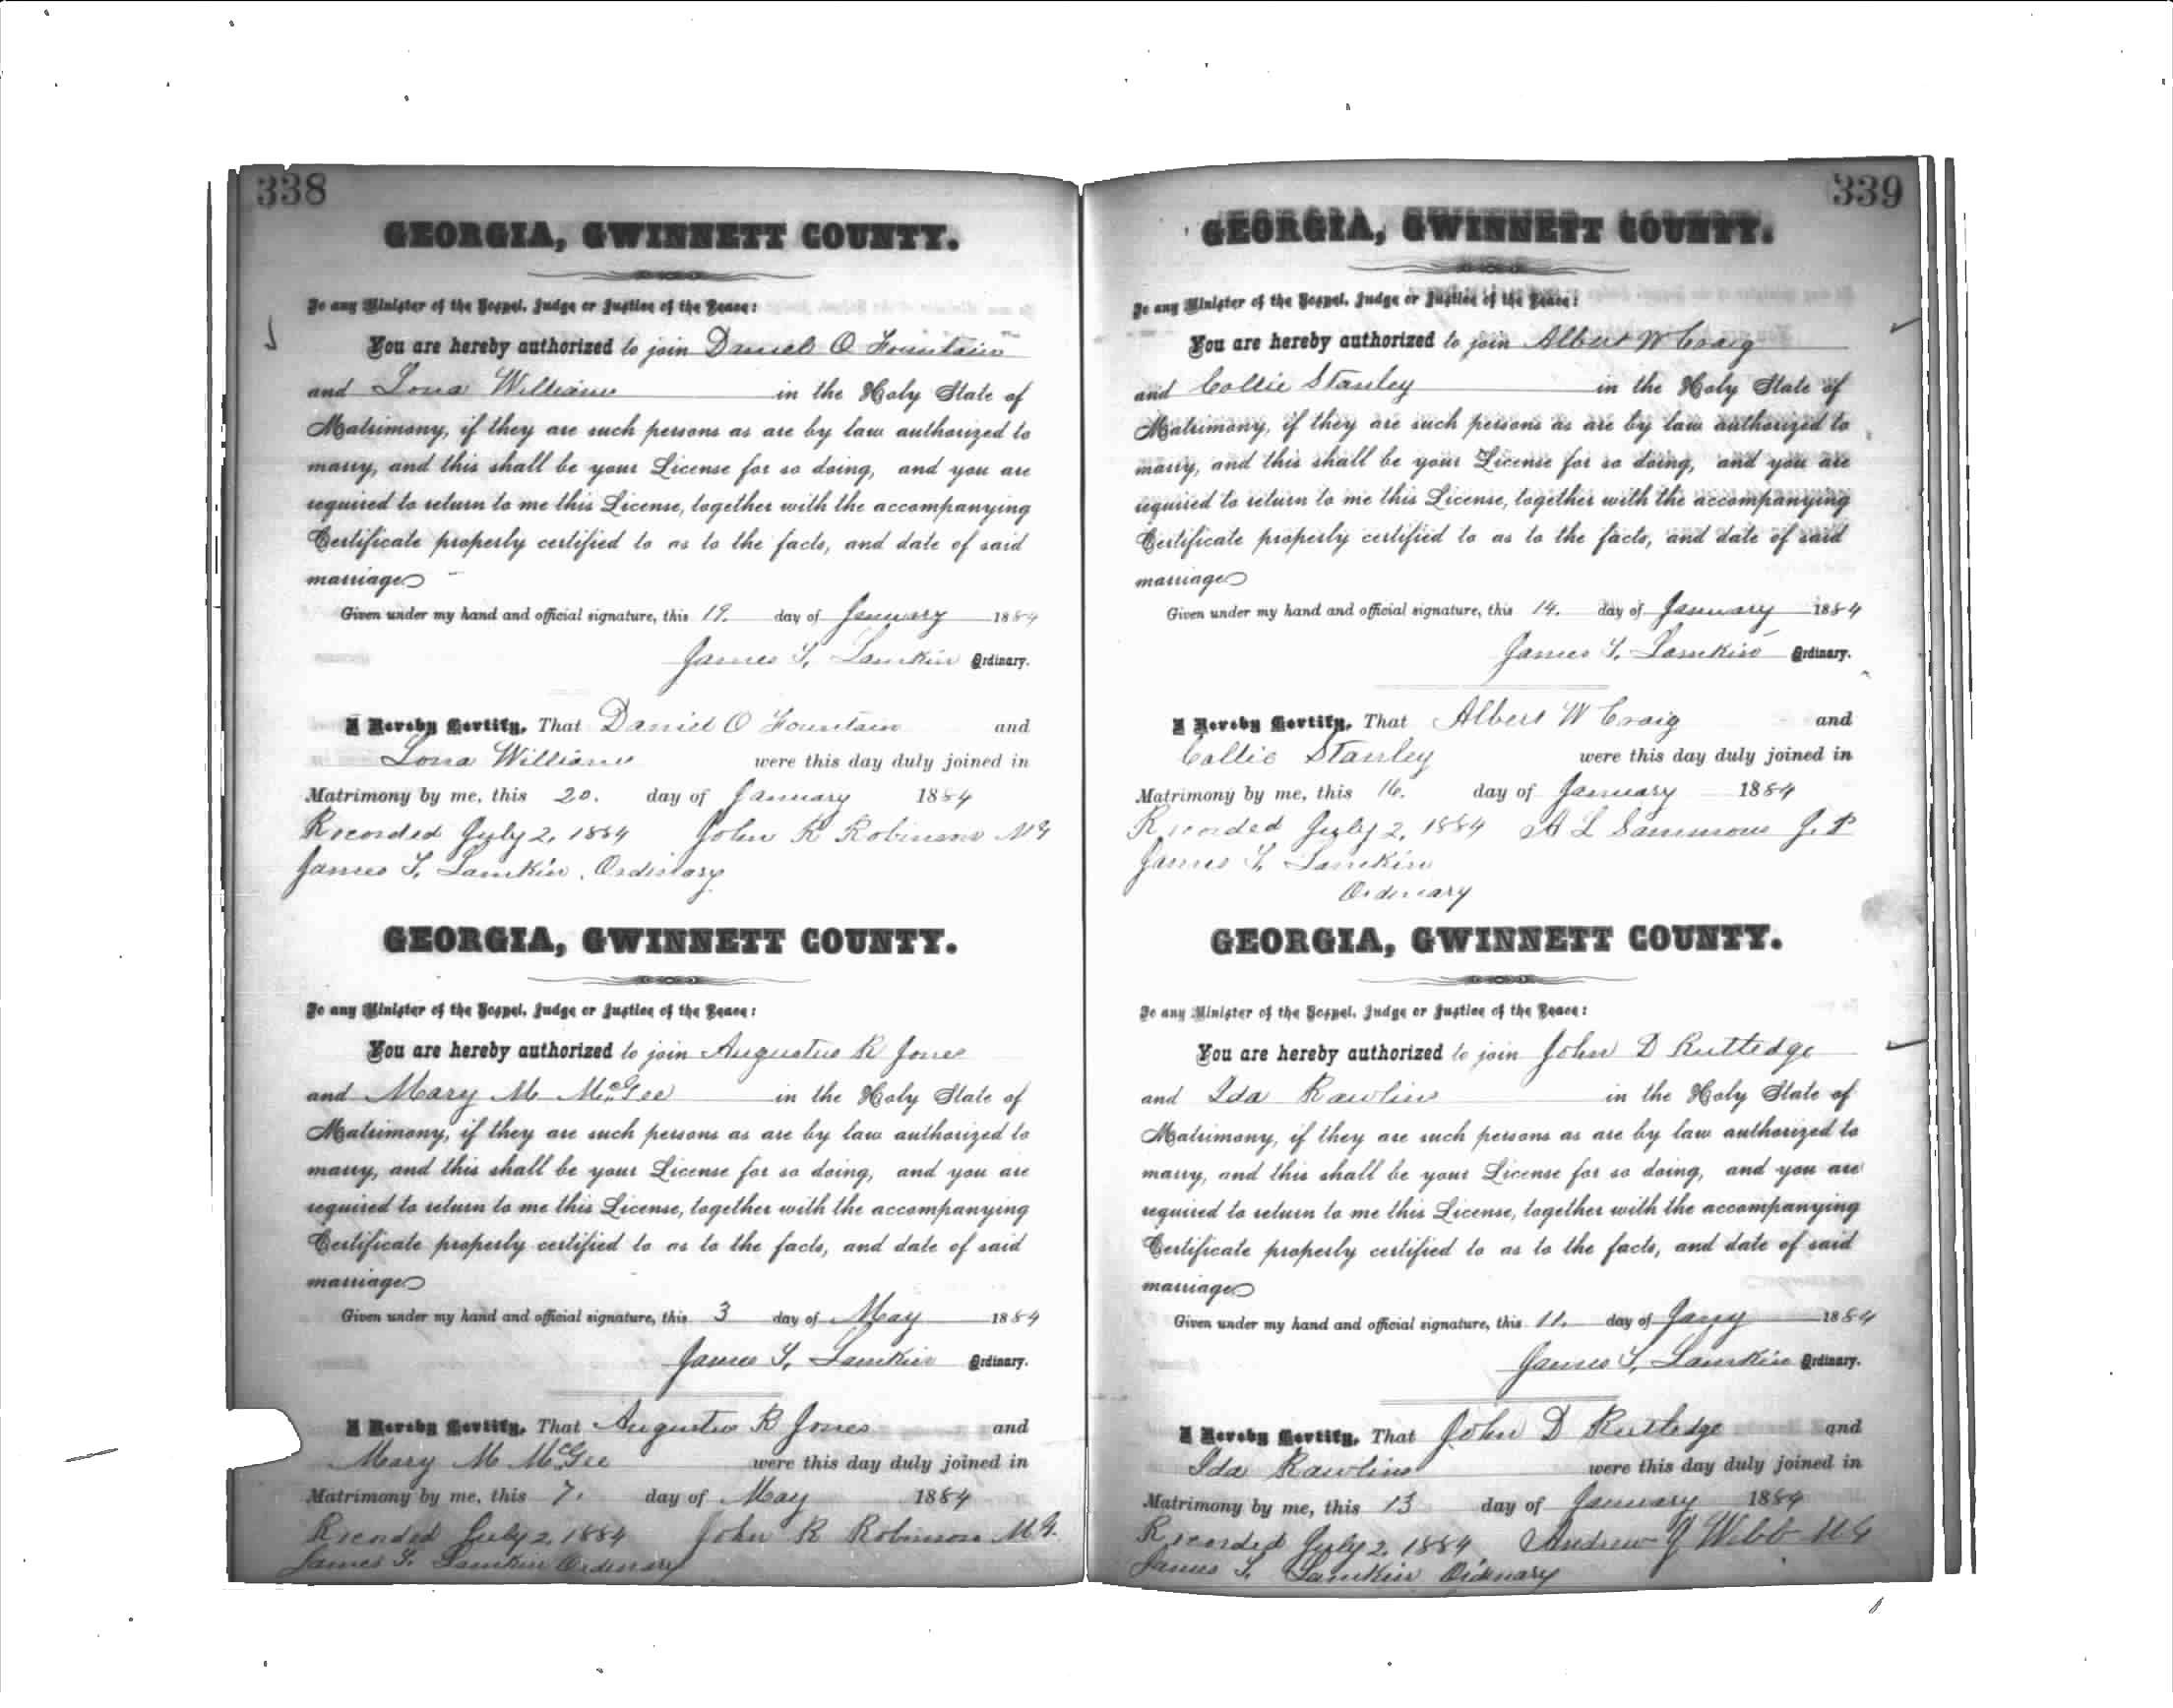 338
GEORGIA, GWINNETT COUNTY.
To any Minister of the Gospel, Judge or Justice of the Peace:
You are hereby authorized to join Daniel O Fountain
and Lona Williams in the Holy State of
Matrimony, if they are such persons as are by law authorized to
marry, and this shall be your License for so doing, and you are
required to return to me this License, together with the accompanying
Certificate properly certified to as to the facts, and date of said
marriage
Given under my hand and official signature, this 19. day of January 1884
James T. Lamkin Ordinary.
I Hereby Certify, That Daniel O Fountain and
Lona Williams were this day duly joined in
Matrimony by me, this 20. day of January 1884
Recorded July 2, 1884 John R Robinson M G
James T. Lamkin, Ordinary
GEORGIA, GWINNETT COUNTY.
To any Minister of the Gospel, Judge or Justice of the Peace:
You are hereby authorized to join Augustus R Jones
and Mary M McGee in the Holy State of
Matrimony, if they are such persons as are by law authorized to
marry, and this shall be your License for so doing, and you are
required to return to me this License, together with the accompanying
Certificate properly certified to as to the facts, and date of said
marriage
Given under my hand and official signature, this 3 day of May 1884
James T. Lamkin Ordinary.
I Hereby Certify, That Augustus R Jones and
Mary M McGee were this day duly joined in
Matrimony by me, this 7. day of May 1884
Recorded July 2, 1884 John R Robinson M G.
James T. Lamkin Ordinary
339
GEORGIA, GWINNETT COUNTY.
To any Minister of the Gospel, Judge or Justice of the Peace:
You are hereby authorized to join Albert W Craig
and Collie Stanley in the Holy State of
Matrimony, if they are such persons as are by law authorized to
marry, and this shall be your License for so doing, and you are
required to return to me this License, together with the accompanying
Certificate properly certified to as to the facts, and date of said
marriage
Given under my hand and official signature, this 14. day of January 1884
James T. Lamkin Ordinary.
I Hereby Certify, That Albert W Craig and
Collie Stanley were this day duly joined in
Matrimony by me, this 16. day of January 1884
Recorded July 2, 1884 A L Sammons J. P
James T. Lamkin
Ordinary
GEORGIA, GWINNETT COUNTY.
To any Minister of the Gospel, Judge or Justice of the Peace:
You are hereby authorized to join John D Rutledge
and Ida Rawlins in the Holy State of
Matrimony, if they are such persons as are by law authorized to
marry, and this shall be your License for so doing, and you are
required to return to me this License, together with the accompanying
Certificate properly certified to as to the facts, and date of said
marriage
Given under my hand and official signature, this 11. day of Jany 1884
James T. Lamkin Ordinary.
I Hereby Certify, That John D Rutledge and
Ida Rawlins were this day duly joined in
Matrimony by me, this 13 day of January 1884
Recorded July 2, 1884 Andrew J Webb M G
James T. Lamkin Ordinary